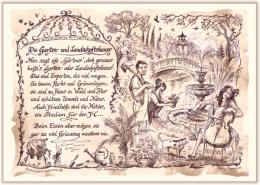 Die Garten- und Landschaftsbauer
Man sagt oft „Gärtner“, doch genauer
heißt's Garten- oder Landschaftsbauer.
Das sind Experten, die viel wagen.
Sie bauen Parks und Grünanlagen,
sie sind zu Haus in Wald und Flur
und schützen Umwelt und Natur.
Auch Friedhöfe sind ihr Metier,
ein Stadion für den FC...
Beim Essen aber mögen sie
gar zu viel Grünzeug meistens nie.